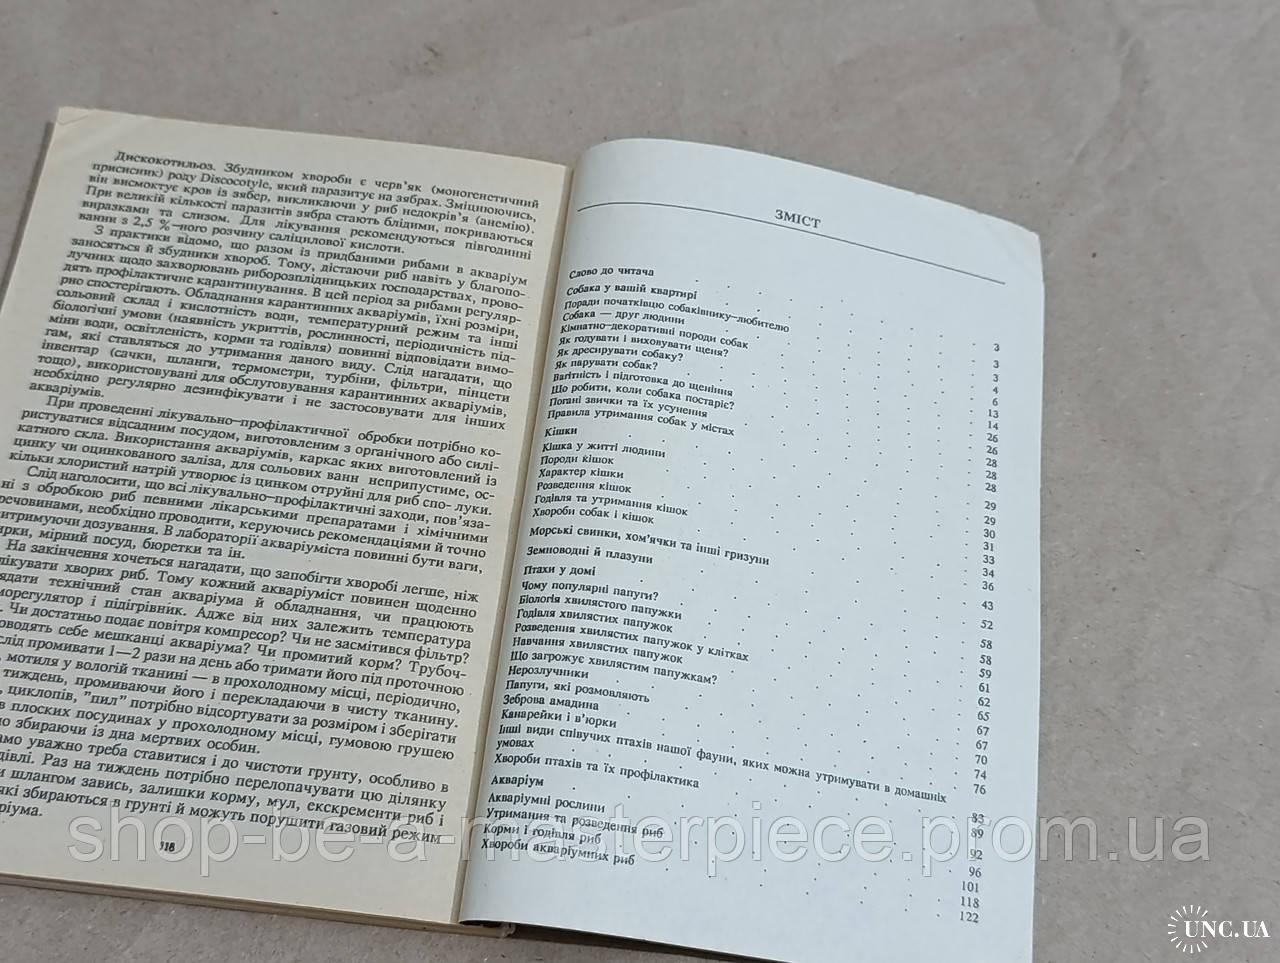 Дискокотильоз. Збудником хвороби є черв'як (моногенетичний
присисник) роду Discocotyle, який паразитує на зябрах. Зміцнюючись,
він висмоктує кров із зябер, викликаючи у риб недокрів'я (анемію).
При великій кількості паразитів зябра стають блідими, покриваються
виразками та слизом. Для лікування рекомендуються півгодинні
ванни з 2,5 %-ного розчину саліцилової кислоти.
З практики відомо, що разом із придбаними рибами в акваріум
заносяться й збудники хвороб. Тому, дістаючи риб навіть у благопо-
лучних щодо захворювань риборозплідницьких господарствах, прово-
дять профілактичне карантинування. В цей період за рибами регуляр-
но спостерігають. Обладнання карантинних акваріумів, їхні розміри,
сольовий склад і кислотність води, температурний режим та інші
біологічні умови (наявність укриттів, рослинності, періодичність під-
міни води, освітленість, корми та годівля) повинні відповідати вимо-
гам, які ставляться до утримання даного виду. Слід нагадати, що
інвентар (сачки, шланги, термометри, турбіни, фільтри, пінцети
тощо), використовувані для обслуговування карантинних акваріумів,
необхідно регулярно дезинфікувати і не застосовувати для інших
акваріумів.
При проведенні лікувально-профілактичної обробки потрібно ко-
ристуватися відсадним посудом, виготовленим з органічного або силі-
катного скла. Використання акваріумів, каркас яких виготовлений із
цинку чи оцинкованого заліза, для сольових ванн неприпустиме, ос-
кільки хлористий натрій утворює із цинком отруйні для риб спо- луки.
Слід наголосити, що всі лікувально-профілактичні заходи, пов'яза-
ні з обробкою риб певними лікарськими препаратами і хімічними
речовинами, необхідно проводити, керуючись рекомендаціями й точно
витримуючи дозування. В лабораторії акваріуміста повинні бути ваги,
ирки, мірний посуд, бюретки та ін.
На закінчення хочеться нагадати, що запобігти хворобі легше, ніж
лікувати хворих риб. Тому кожний акваріуміст повинен щоденно
ядати технічний стан акваріума й обладнання, чи працюють
морегулятор і підігрівник. Адже від них залежить температура
. Чи достатньо подає повітря компресор? Чи не засмітився фільтр?
оводять себе мешканці акваріума? Чи промитий корм? Трубоч-
слід промивати 1—2 рази на день або тримати його під проточною
, мотиля у вологій тканині — в прохолодному місці, періодично,
тиждень, промиваючи його і перекладаючи в чисту тканину.
, циклопів, "пил" потрібно відсортувати за розміром і зберігати
в плоских посудинах у прохолодному місці, гумовою грушею
о збираючи із дна мертвих особин.
амо уважно треба ставитися і до чистоти грунту, особливо в
дівлі. Раз на тиждень потрібно перелопачувати цю ділянку
и шлангом завись, залишки корму, мул, екскременти риб і
які збираються в грунті й можуть порушити газовий режим
ріума.
ЗМІСТ
Слово до читача . 3
Собака у вашій квартирі . 3
Поради початківцю собаківнику-любителю . 3
Собака — друг людини . 4
Кімнатно-декоративні породи собак . 6
Як годувати і виховувати щеня? . 13
Як дресирувати собаку? . 14
Як парувати собак? . 26
Вагітність і підготовка до щеніння . 26
Що робити, коли собака постаріє? . 28
Погані звички та їх усунення . 28
Правила утримання собак у містах . 28
Кішки . 29
Кішка у житті людини . 29
Породи кішок . 30
Характер кішки . 31
Розведення кішок . 33
Годівля та утримання кішок . 34
Хвороби собак і кішок . 36
Морські свинки, хом'ячки та інші гризуни . 43
Земноводні й плазуни . 52
Птахи у домі . 58
Чому популярні папуги? . 58
Біологія хвилястого папужки . 59
Годівля хвилястих папужок . 61
Розведення хвилястих папужок у клітках . 62
Навчання хвилястих папужок . 65
Що загрожує хвилястим папужкам? . 67
Нерозлучники . 67
Папуги, які розмовляють . 70
Зеброва амадина . 74
Канарейки і в'юрки . 76
Інші види співучих птахів нашої фауни, яких можна утримувати в домашніх
умовах . 83
Хвороби птахів та їх профілактика . 89
Акваріум . 92
Акваріумні рослини . 96
Утримання та розведення риб . 101
Корми і годівля риб . 118
Хвороби акваріумних риб . 122
shop-be-a-masterpiece.prom.ua
UNC.UA